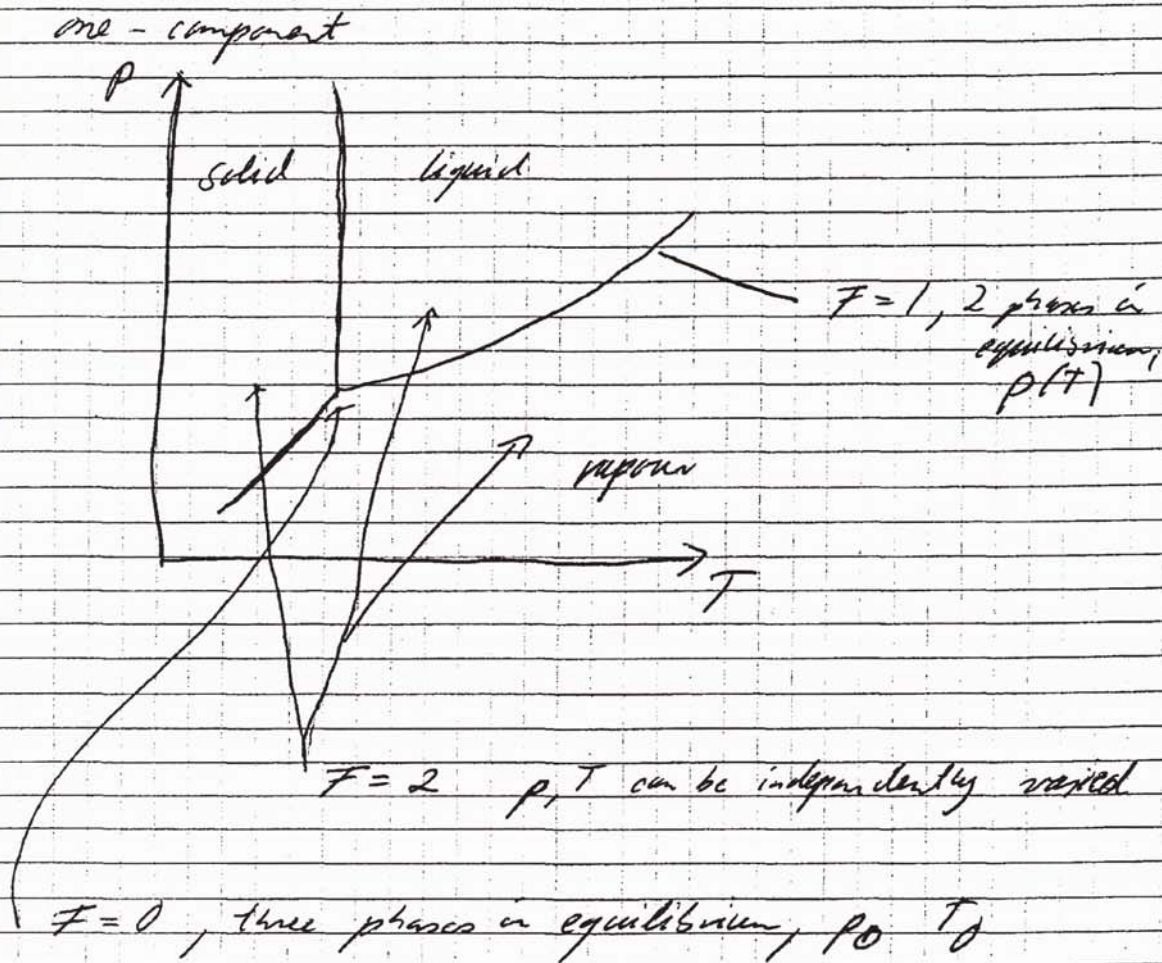 one - component
P
solid
liquid
F = 1, 2 phases in
equilibrium,
p(T)
vapour
T
F = 2 p, T can be independently varied
F = 0, three phases in equilibrium, p0 T0